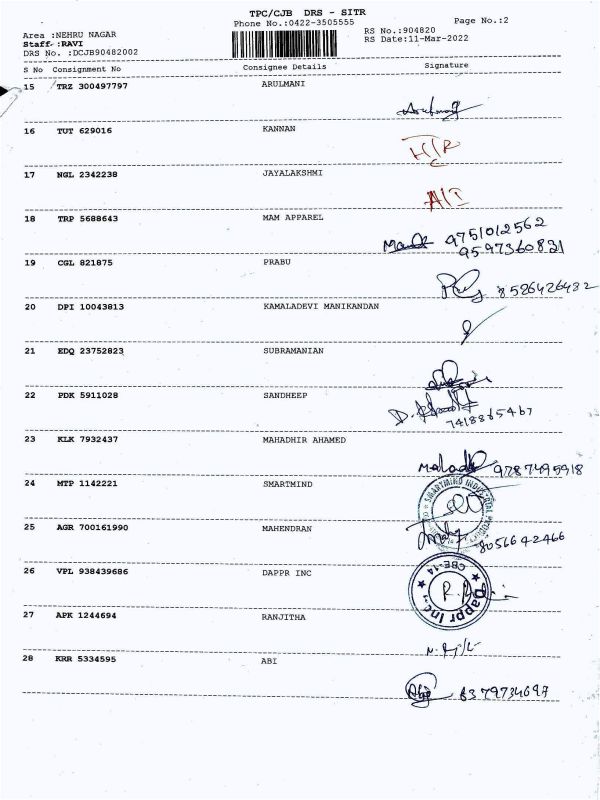 TPC/CJB DRS - SITR
Phone No.:0422-3505555 Page No.:2
Area :NEHRU NAGAR RS No.:904820
Staff :RAVI RS Date:11-Mar-2022
DRS No. :DCJB90482002
S No Consignment No Consignee Details Signature
15 TRZ 300497797 ARULMANI
16 TUT 629016 KANNAN
H/R
17 NGL 2342238 JAYALAKSHMI
A/I
18 TRP 5688643 MAM APPAREL
9751012562
9597360831
19 CGL 821875 PRABU
8526426432
20 DPI 10043813 KAMALADEVI MANIKANDAN
21 EDQ 23752823 SUBRAMANIAN
22 PDK 5911028 SANDHEEP
7418865467
23 KLK 7932437 MAHADHIR AHAMED
9787495918
24 MTP 1142221 SMARTMIND
SMARTMIND
25 AGR 700161990 MAHENDRAN
8056642466
26 VPL 938439686 DAPPR INC
CBE-14
Dappr Inc
27 APK 1244694 RANJITHA
28 KRR 5334595 ABI
Abi 8379734697